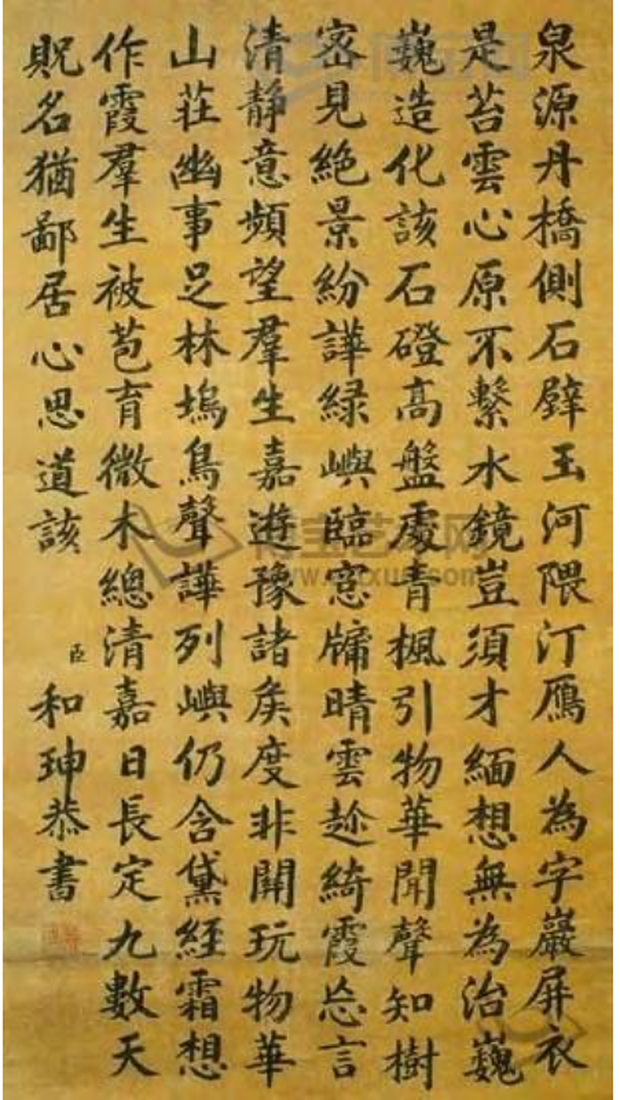 泉源丹橋側石壁玉河隈汀鴈人為字巖屏衣
是苔雲心原不繫水鏡豈須才緬想無為治巍
巍造化該石磴高盤處青楓引物華聞聲知樹
宻見絶景紛譁緑嶼臨窓牖晴雲趂綺霞忘言
清靜意頻望羣生嘉遊豫諸矦度非開玩物華
山荘幽事足林塢鳥聲譁列嶼仍含黛經霜想
作霞羣生被苞育微木總清嘉日長定九數天
貺名猶鄙居心思道該 臣 和珅恭書